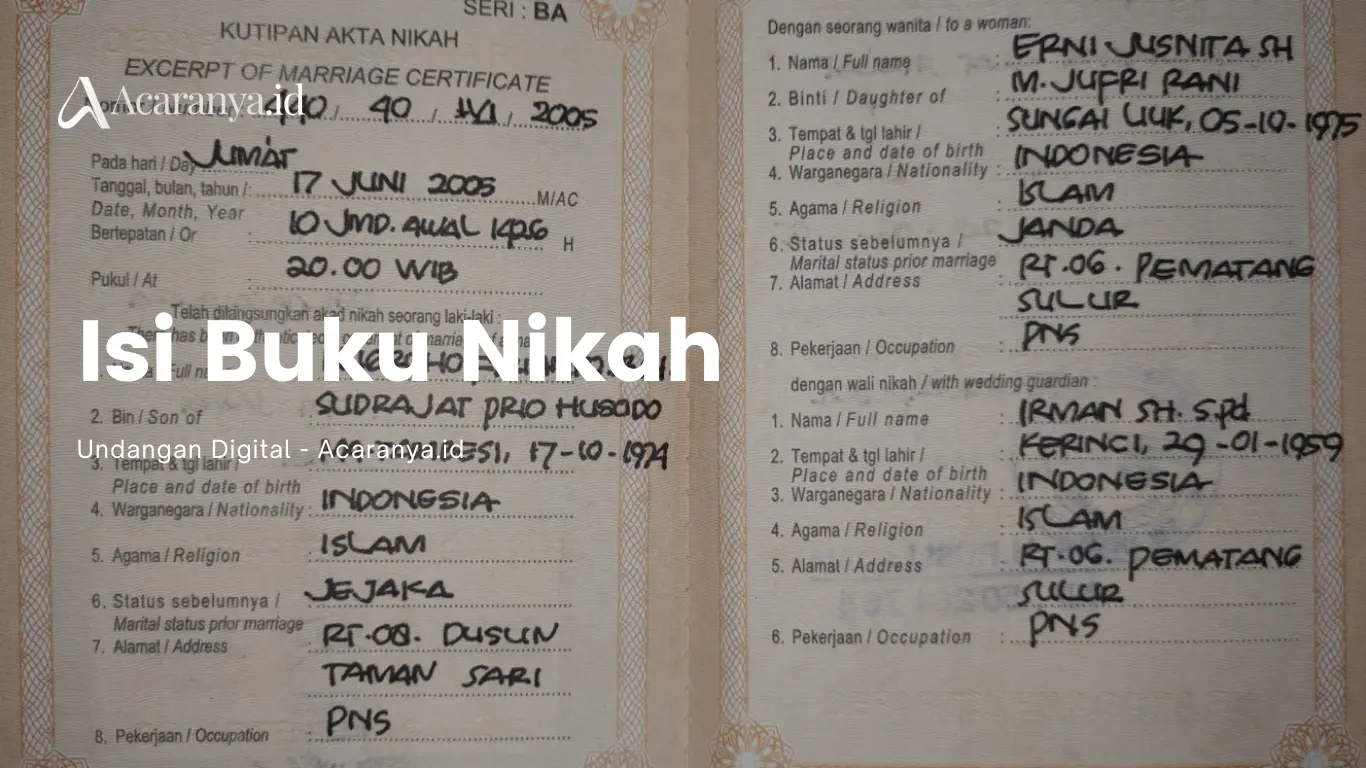 SERI : BA
KUTIPAN AKTA NIKAH
EXCERPT OF MARRIAGE CERTIFICATE
Acaranya.id
440 / 40 / / VI / 2005
Pada hari / Day JUM'AT
Tanggal, bulan, tahun /: 17 JUNI 2005 M/AC
Date, Month, Year
Bertepatan / Or : 10 JMD. AWAL 1426 H
Pukul / At : 20.00 WIB
Telah dilangsungkan akad nikah seorang laki-laki :
Isi Buku Nikah
2. Bin / Son of : SUDRAJAT PRIO HUSODO
Undangan Digital - Acaranya.id
3. Tempat & tgl lahir / 17-10-1974
Place and date of birth
4. Warganegara / Nationality : INDONESIA
5. Agama / Religion : ISLAM
6. Status sebelumnya / : JEJAKA
Marital status prior marriage
7. Alamat / Address : RT.08. DUSUN
TAMAN SARI
8. Pekerjaan / Occupation : PNS
Dengan seorang wanita / to a woman:
1. Nama / Full name : ERNI JUSNITA SH
2. Binti / Daughter of : M. JUFRI RANI
3. Tempat & tgl lahir / : SUNGAI LIUK, 05-10-1975
Place and date of birth
4. Warganegara / Nationality : INDONESIA
5. Agama / Religion : ISLAM
6. Status sebelumnya / : JANDA
Marital status prior marriage
7. Alamat / Address : RT.06. PEMATANG
SULUR
8. Pekerjaan / Occupation : PNS
dengan wali nikah / with wedding guardian :
1. Nama / Full name : IRMAN SH. S.Pd
2. Tempat & tgl lahir / : KERINCI, 29-01-1959
Place and date of birth
3. Warganegara / Nationality : INDONESIA
4. Agama / Religion : ISLAM
5. Alamat / Address : RT.06. PEMATANG
SULUR
6. Pekerjaan / Occupation : PNS